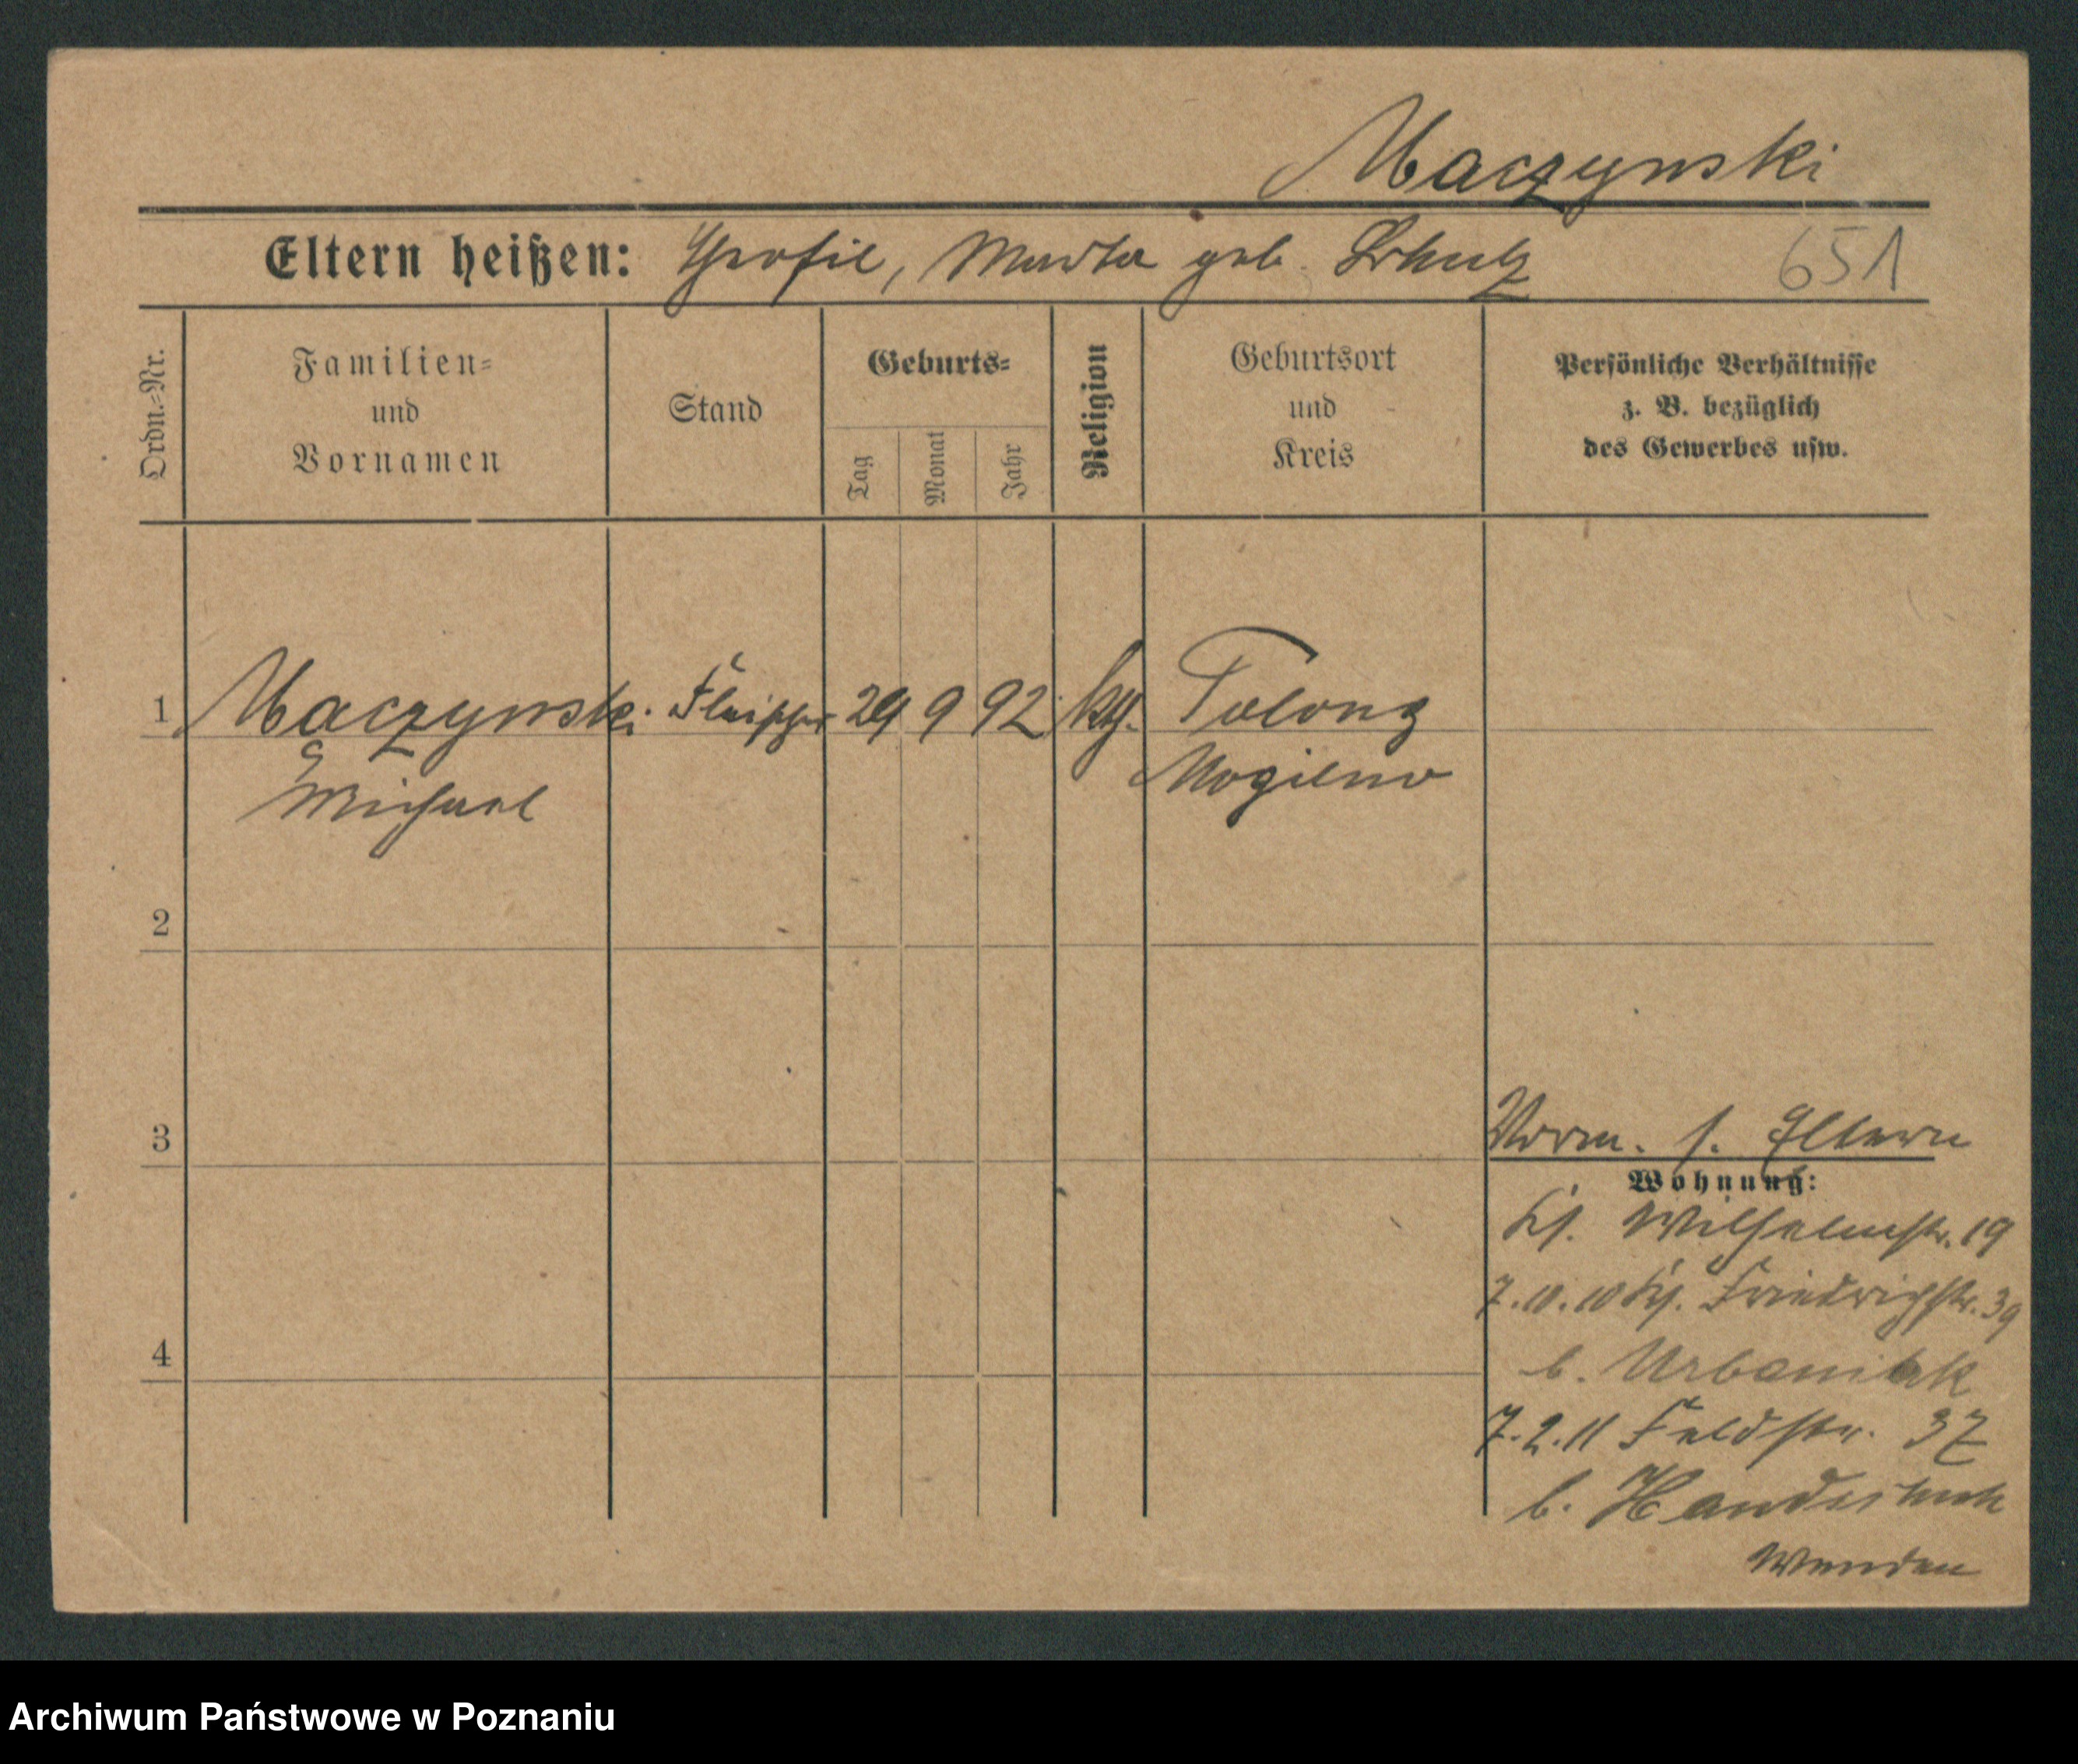 Maczynski
Eltern heißen: Theofil, Martha geb. Schulz
651
Ordn.=Nr.
Familien=
und
Vornamen
Stand
Geburts=
Tag
Monat
Jahr
Religion
Geburtsort
und
Kreis
Persönliche Verhältnisse
z. B. bezüglich
des Gewerbes usw.
1 Maczynski Fleischer 29 9 92 kth.
Mogilno
Michael
2
3
Vorm. s. Eltern
Wohnung:
Kl. Wilhelmstr. 19
7.10.10 Kl. Friedrichstr. 39
b. Urbaniak
4
7.2.11 Feldstr. 37
b.
Archiwum Państwowe w Poznaniu